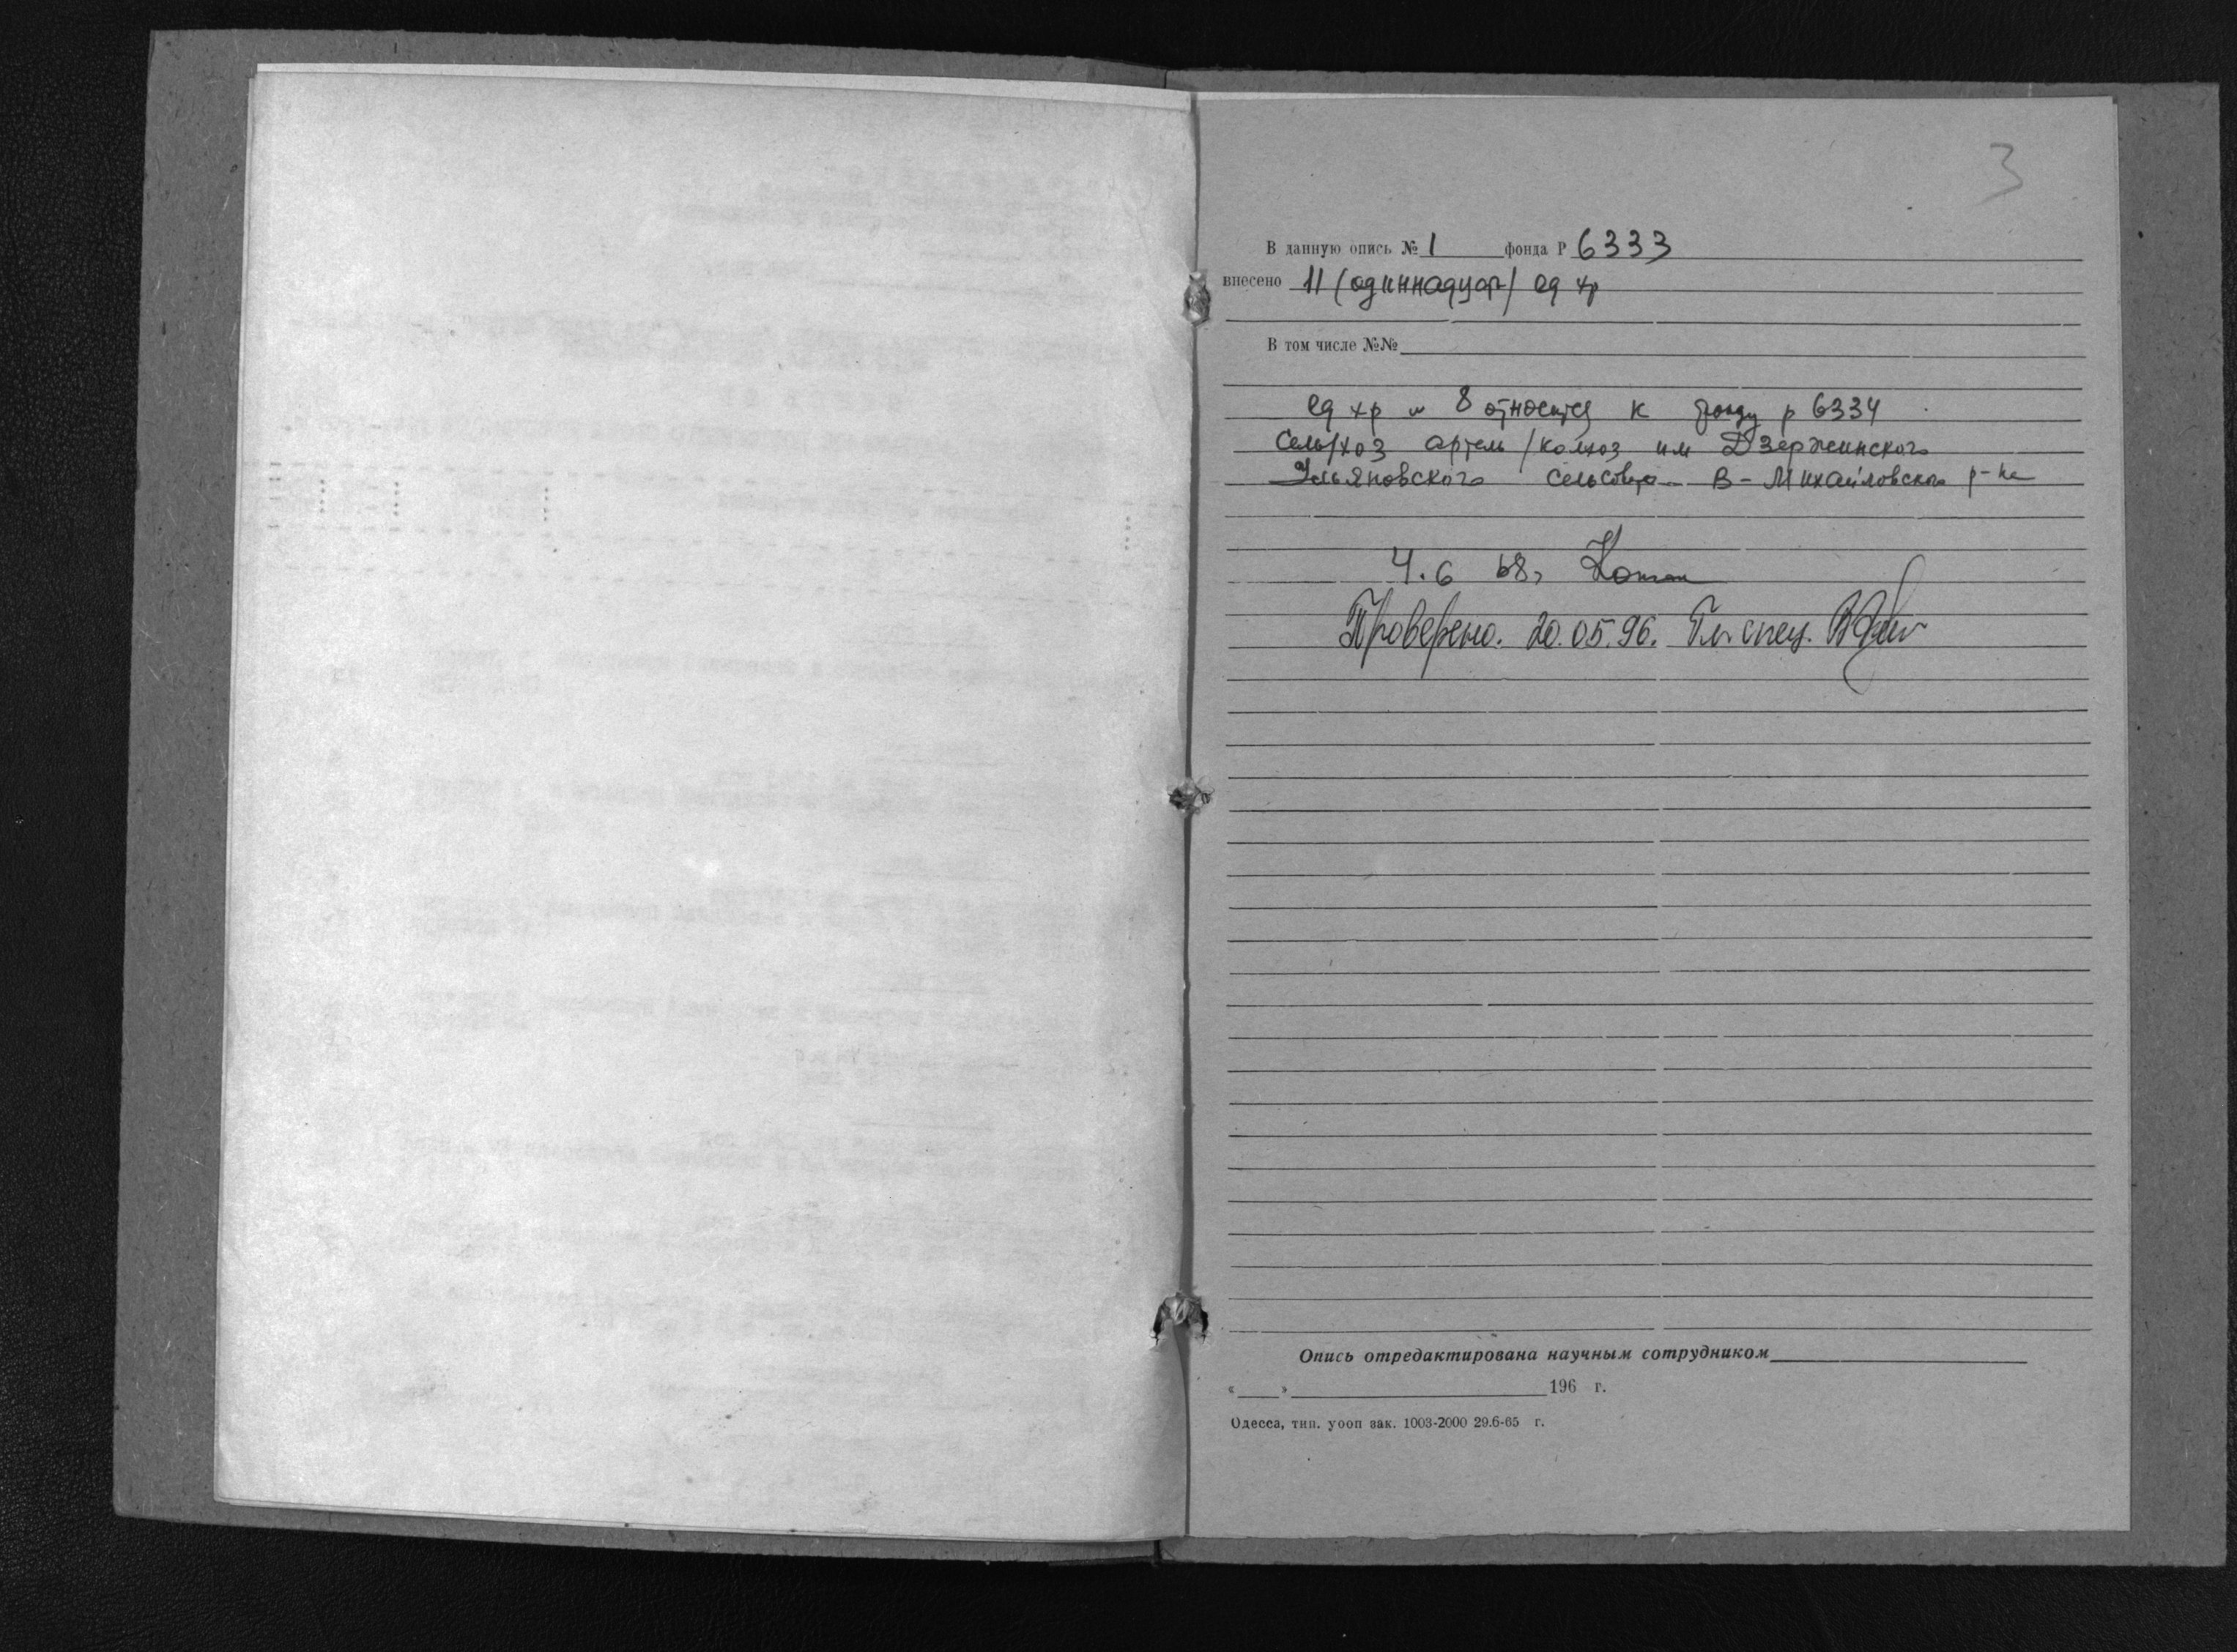 3
В данную опись № 1 фонда Р 6333
внесено 11 (одиннадцат) ед хр
В том числе №№
ед хр № 8 относится к фонду р 6334
Сель/хоз артель /колхоз им Дзержинского
Ульяновского сельсовета В-Михайловского р-на
4.6 68г
Проверено. 20.05.96. Гл. спец.
Опись отредактирована научным сотрудником
« » 196 г.
Одесса, тип. уооп зак. 1003-2000 29.6-65 г.